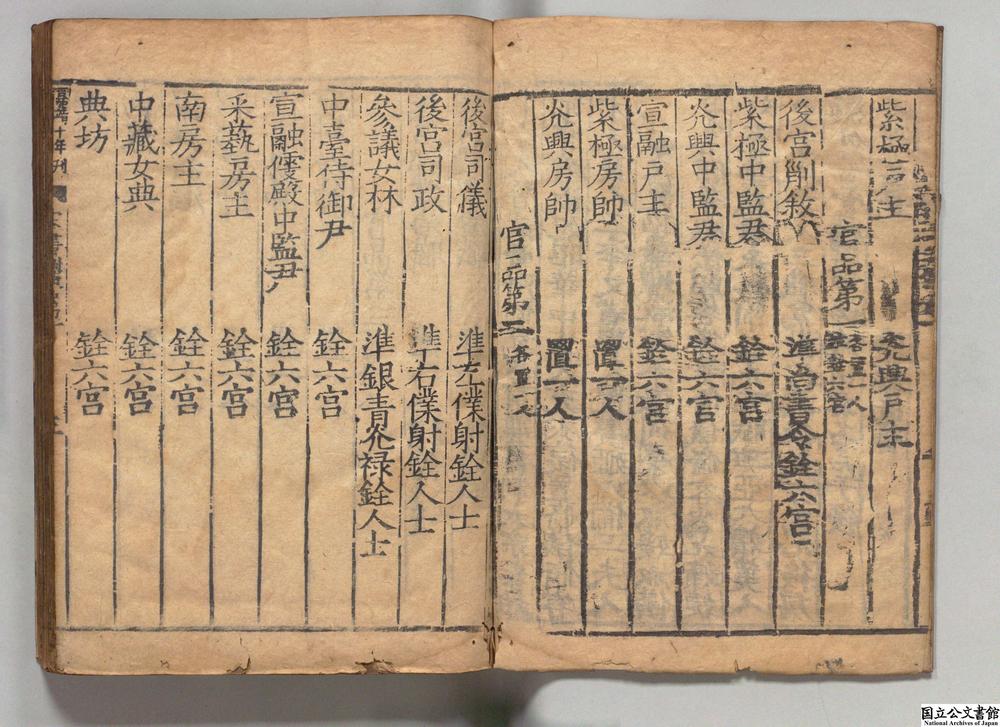 紫極戶主 光興戶主
官品第一 各置一人銓六宮
後宮削敘 准尚書令銓六宮
紫極中監尹 銓六宮
光興中監尹 銓六宮
宣融戶主 銓六宮
紫極房帥 置一人
光興房帥 置一人
官品第二 各置一人
後宮司儀 準左僕射銓人士
後宮司政 準右僕射銓人士
參議女林 準銀青光祿銓人士
中臺侍御尹 銓六宮
宣融便殿中監尹 銓六宮
采藝房主 銓六宮
南房主 銓六宮
中藏女典 銓六宮
典坊 銓六宮
国立公文書館
National Archives of Japan